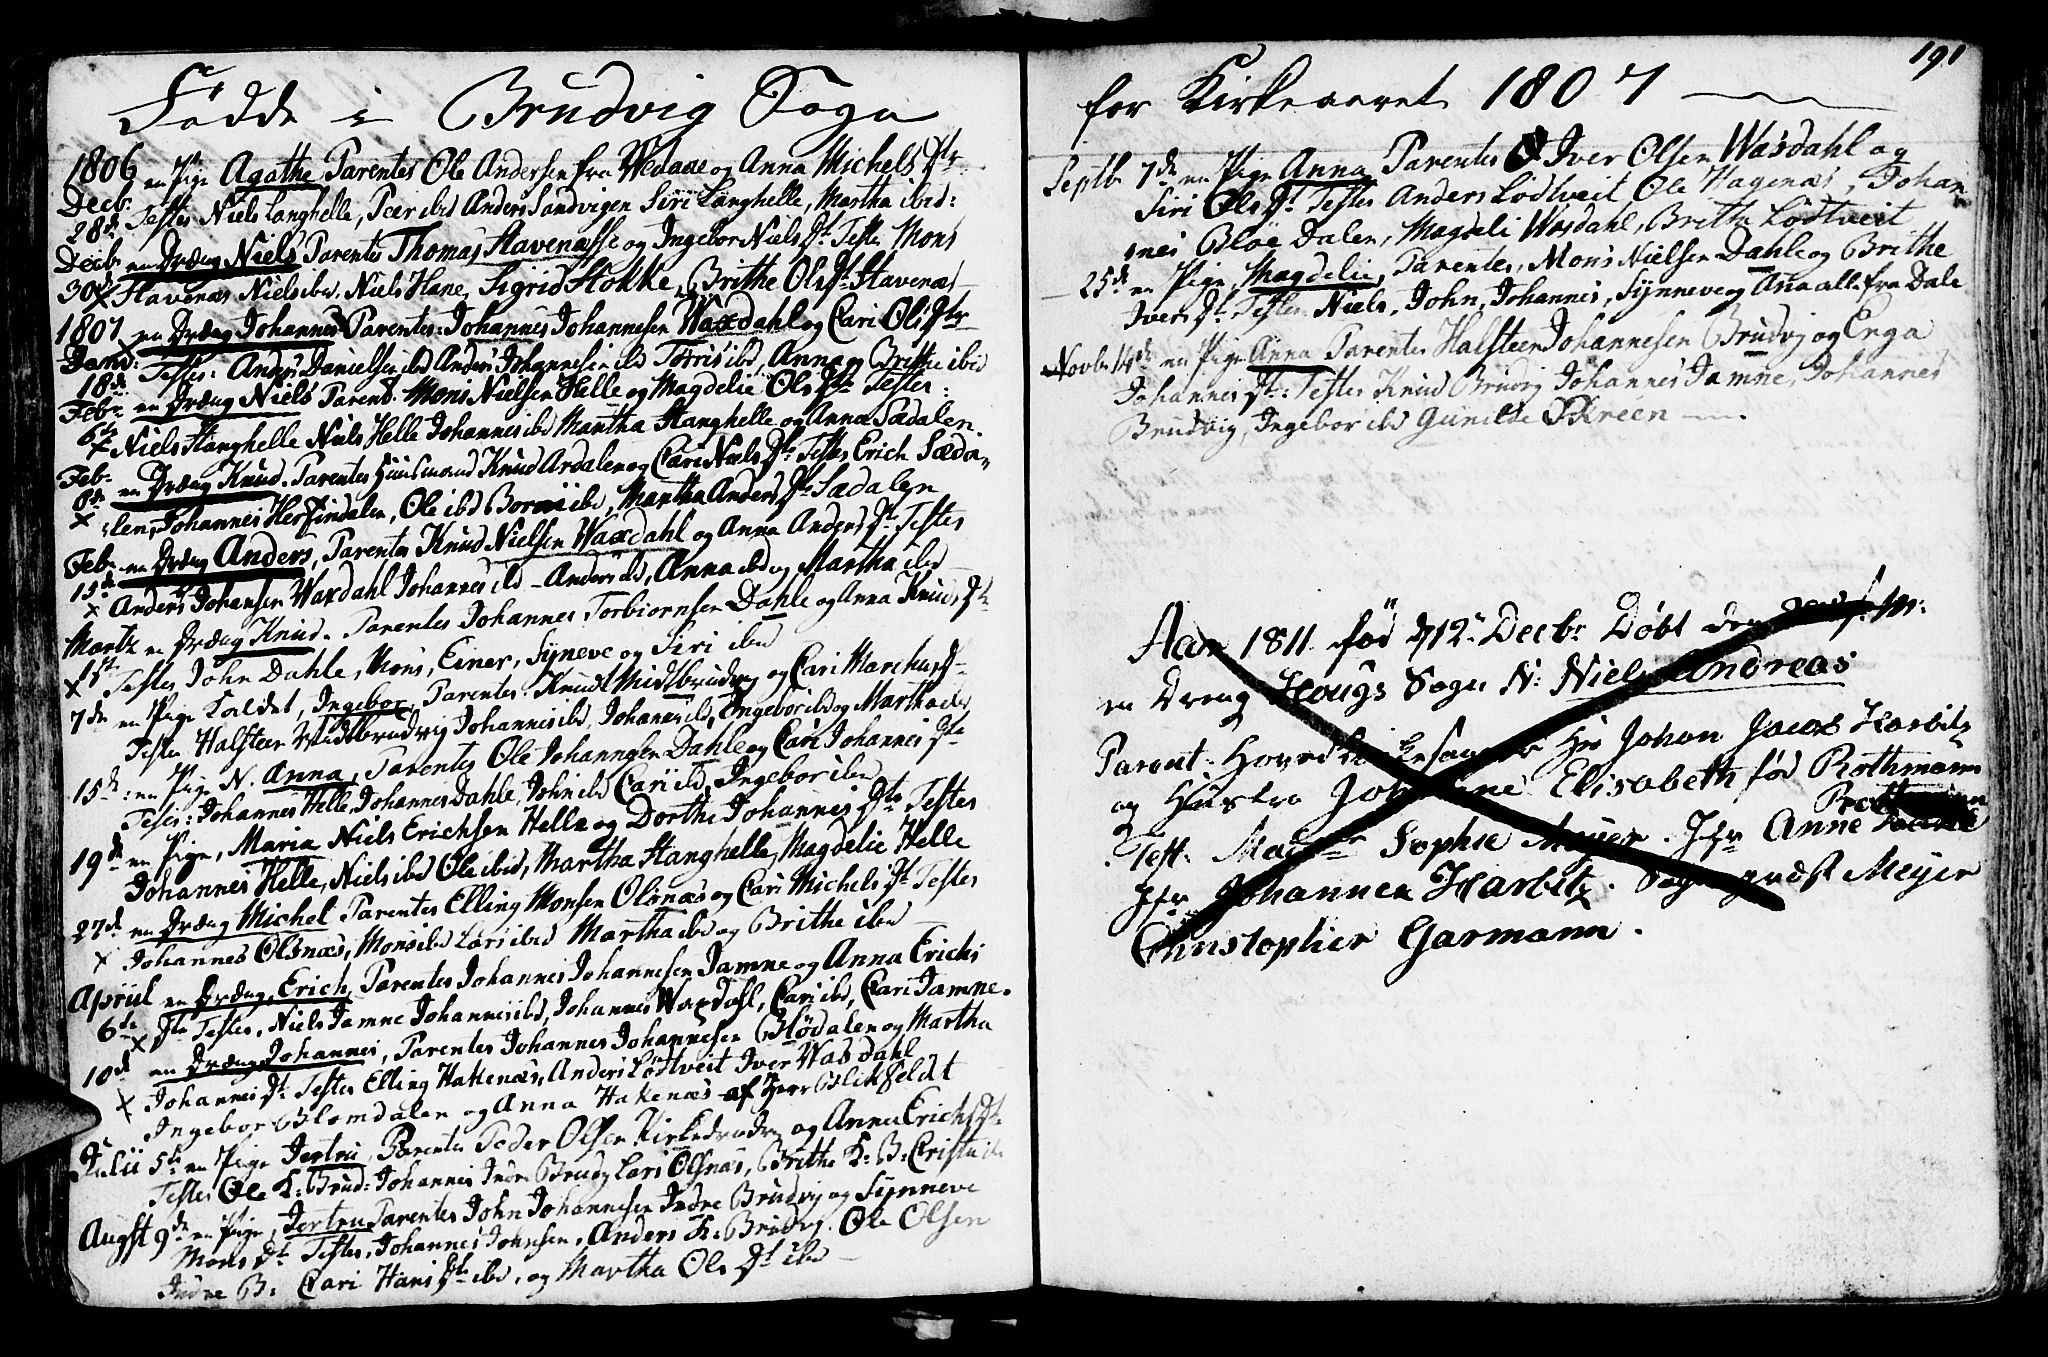 Födde i Brudvig Sogn
1806 en Pige Agathe Parentes Ole Andersen fra Vedaae og Anna Michels Dtr
Decb. 28de Testes Niels Langhelle, Peer ibid Anders Sandvigen Siri Langhelle, Martha ibid:
Decb en Dræng Niels Parentes Thomas Stavenæsse og Ingebor Niels Dt. Teste Mons
30 x Stavenæs Niels ibid. Niels Hane, Sigrid Stokke, Brithe Ols Dt. Stavenæs
1807 en Dræng Johannes Parentes: Johannes Johannesen Waxdahl og Cari Olis Dtr
18de Testes: Anders Danielsen ibd Anders Johannesen ibd Torris ibd, Anna og Brithe ibid
Febr. en Dræng Niels Parent. Mons Nielsen Helle og Magdelie Ols Dtr Testes:
6te x Niels Stanghelle Niels Helle Johannes ibd Martha Stanghelle og Anna Sædalen
Feb. en Dræng Knud. Parentes Huusmand Knud Ardalen og Cari Niels Dt. Testes Erich Sæda,,
8de x :len, Johannes Herfindalen, Ole ibd ibd, Martha Anders Dt. Sædalen
Feb. en Dræng Anders, Parentes Knud Nielsen Waxdahl og Anna Anders Dt. Testes
15de x Anders Johansen Waxdahl Johannes ibd - Anders ibd, Anna ibd og Martha ibd
Martz en Dræng Knud. Parentes Johannes Torbiornsen Dahle og Anna Knuds Dt.
1st x Testes John Dahle, Mons, Einer, Syneve og Siri ibd
7de en Pige Kaldet, Ingebor, Parentes. Knudt Midtbrudvig og Cari Marchus D-
Testes Halsteen Midtbrudvig Johannes ibd, Johannes ibd, Ingebor ibd og Martha ibd
15de: en Pige N. Anna, Parentes Ole Johannesen Dahle og Cari Johannes Dtr
Testes: Johannes Helle, Johannes Dahle, John ibd Cari ibd, Ingebor ibd
19de en Pige, Maria Niels Erichsen Helle og Dorthe Johannes Dtr Testes
Johannes Helle, Niels ibd Ole ibid, Martha Stanghelle, Magdelie Helle
27de en Dræng Michel Parentes Elling Monsen Olsnæs og Cari Michels Dt. Testes
x Johannes Olsnæs, Mons ibd Lars ibid Martha ibd og Brithe ibd
Apriil en Dræng, Erich, Parentes Johannes Johannesen Jamne og Anna Erichs
6te x Dtr Testes, Niels Jamne Johannes ibd, Johannes Waxdahl, Cari ibd, Cari Jamne.
10de en Dræng Johannes, Parentes Johannes Johannesen Blödalen og Martha
x Johannes Dt. Testes Elling Hakenæs, Anders Lödtveit Iver Wasdahl
Ingebor Blomdalen og Anna Hakenæs af Herr Blikfeldt
Julii 5te en Pige Jertru, Parentes Peder Olsen Kirkebrudvig og Anna Erichs Dt.
Testes Ole K: Brud: Johannes Indre Brudv Lars Olsnæs, Brithe K: B: Cristi
Augst 9de en Pige, Jertru Parentes John Johannesen Indre Brudvig og Synneve
Mons Dt. Testes, Johannes Johnsen, Anders K: Brudvig. Ole Olsen
Indre B: Cari Hans Dtr ibd, og Martha Ols Dt ibd
191
for Kirkeaaret 1807
Septbr 7de en Pige Anna Parentes Iver Olsen Wasdahl og
Siri Ols Dt. Testes Anders Lödtveit, Ole Hagenæs, Johan
:nes Blöe Dalen, Magdeli Wasdahl, Britha Lödtveit
25de en Pige, Magdelie, Parentes, Mons Nielsen Dahle og Brithe
Ivers Dt. Testes. Niels, John, Johannes, Synneve og Ana alle fra Dale
Novbr 14de en Pige Anna Parentes Halsteen Johannesen Brudvig og Enga
Johannes Dt: Testes Knud Brudvig Johannes Jamne, Johannes
Brudvig, Ingebor ibd Gunilde Skreen
Aar 1811. föd d 12te Decbr Döbt den
en Dreng Hougs Sogn N: Niels Andreas
Parent: Hr Johan Jacob Harbitz
og Hustru Elisabeth föd Rothmann
Test: Sophie Meyer. Jfr Anne
Jfr Johannea Harbitz. Sognepræst Meyer
Christopher Garmann.